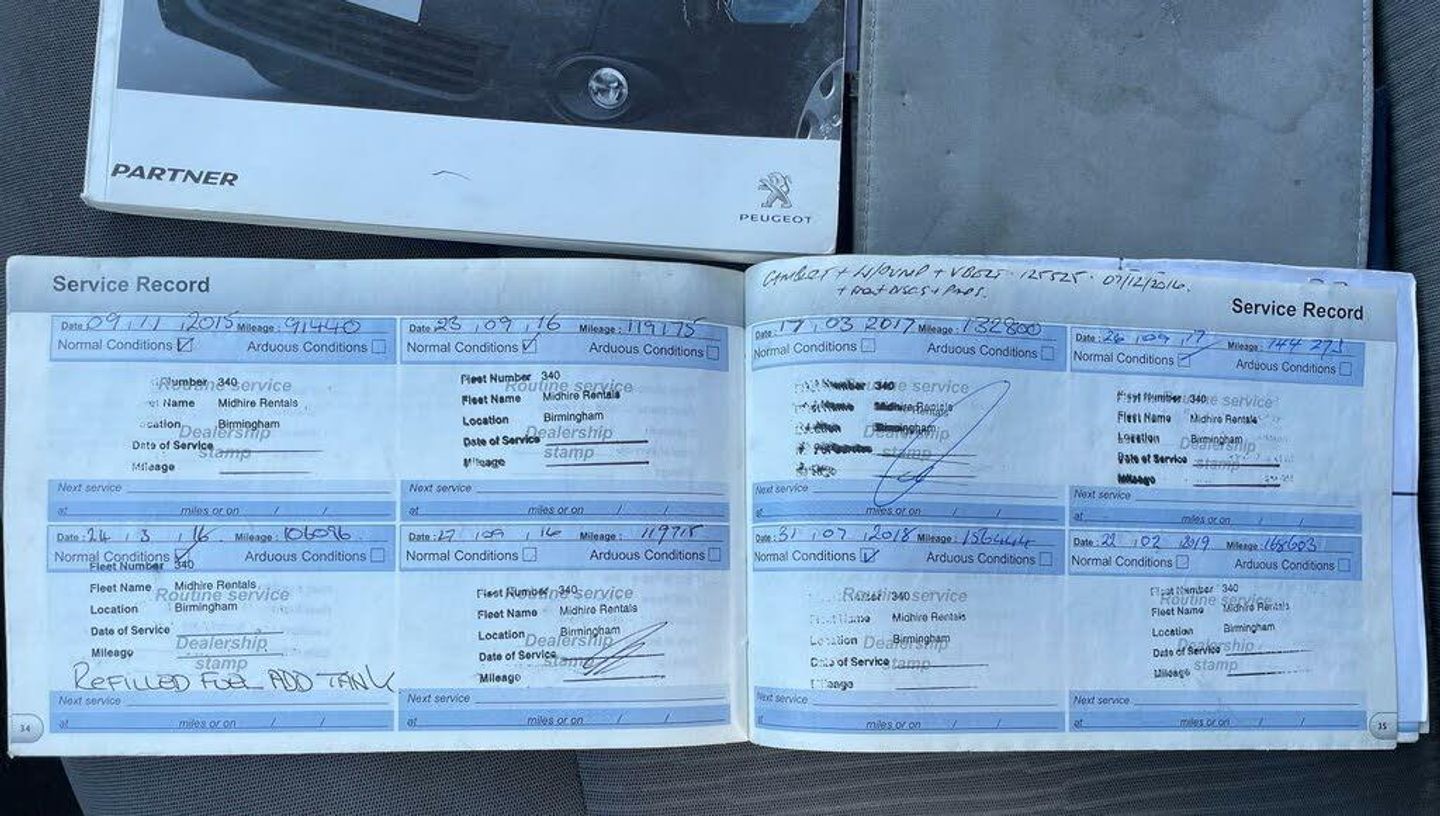 PARTNER
PEUGEOT
Service Record
Date: 09 , 11 , 2015 Mileage: 91440
Normal Conditions Arduous Conditions
Routine service
Number 340
Name Midhire Rentals
Birmingham
Dealership
stamp
Date of Service
Mileage
Next service
at miles or on / /
Date: 23 , 09 , 16 Mileage: 119175
Normal Conditions Arduous Conditions
Routine service
Fleet Number 340
Fleet Name Midhire Rentals
Location Birmingham
Dealership
stamp
Date of Service
Mileage
Next service
at miles or on / /
Date: 24 , 3 , 16 Mileage: 106096
Normal Conditions Arduous Conditions
Fleet Number 340
Fleet Name Midhire Rentals
Routine service
Location Birmingham
Date of Service
Dealership
Mileage
stamp
REFILLED FUEL ADD TANK
Next service
at miles or on / /
Date: 27 , 09 , 16 Mileage: 119715
Normal Conditions Arduous Conditions
Routine service
Fleet Number 340
Fleet Name Midhire Rentals
Location Birmingham
Dealership
Date of Service
stamp
Mileage
Next service
at miles or on / /
34
CAMBELT + W/PUMP + VBELT · 125525 · 07/12/2016.
+ DISCS + PADS.
Service Record
Date: 17 , 03 2017 Mileage: 132800
Normal Conditions Arduous Conditions
Routine service
Number 340
Midhire Rentals
Birmingham
Dealership
stamp
Next service
at miles or on / /
Date: 26 , 09 , 17 Mileage: 144 273
Normal Conditions Arduous Conditions
Routine service
Fleet Number 340
Fleet Name Midhire Rentals
Location Birmingham
Dealership
Date of Service
stamp
Mileage
Next service
at miles or on / /
Date: 31 , 07 , 2018 Mileage: 156444
Normal Conditions Arduous Conditions
Routine service
Number 340
Name Midhire Rentals
Location Birmingham
Dealership
Date of Service
stamp
Mileage
Next service
at miles or on / /
Date: 22 , 02 , 2019 Mileage: 168603
Normal Conditions Arduous Conditions
Routine service
Fleet Number 340
Fleet Name Midhire Rentals
Location Birmingham
Dealership
Date of Service
stamp
Mileage
Next service
at miles or on / /
35